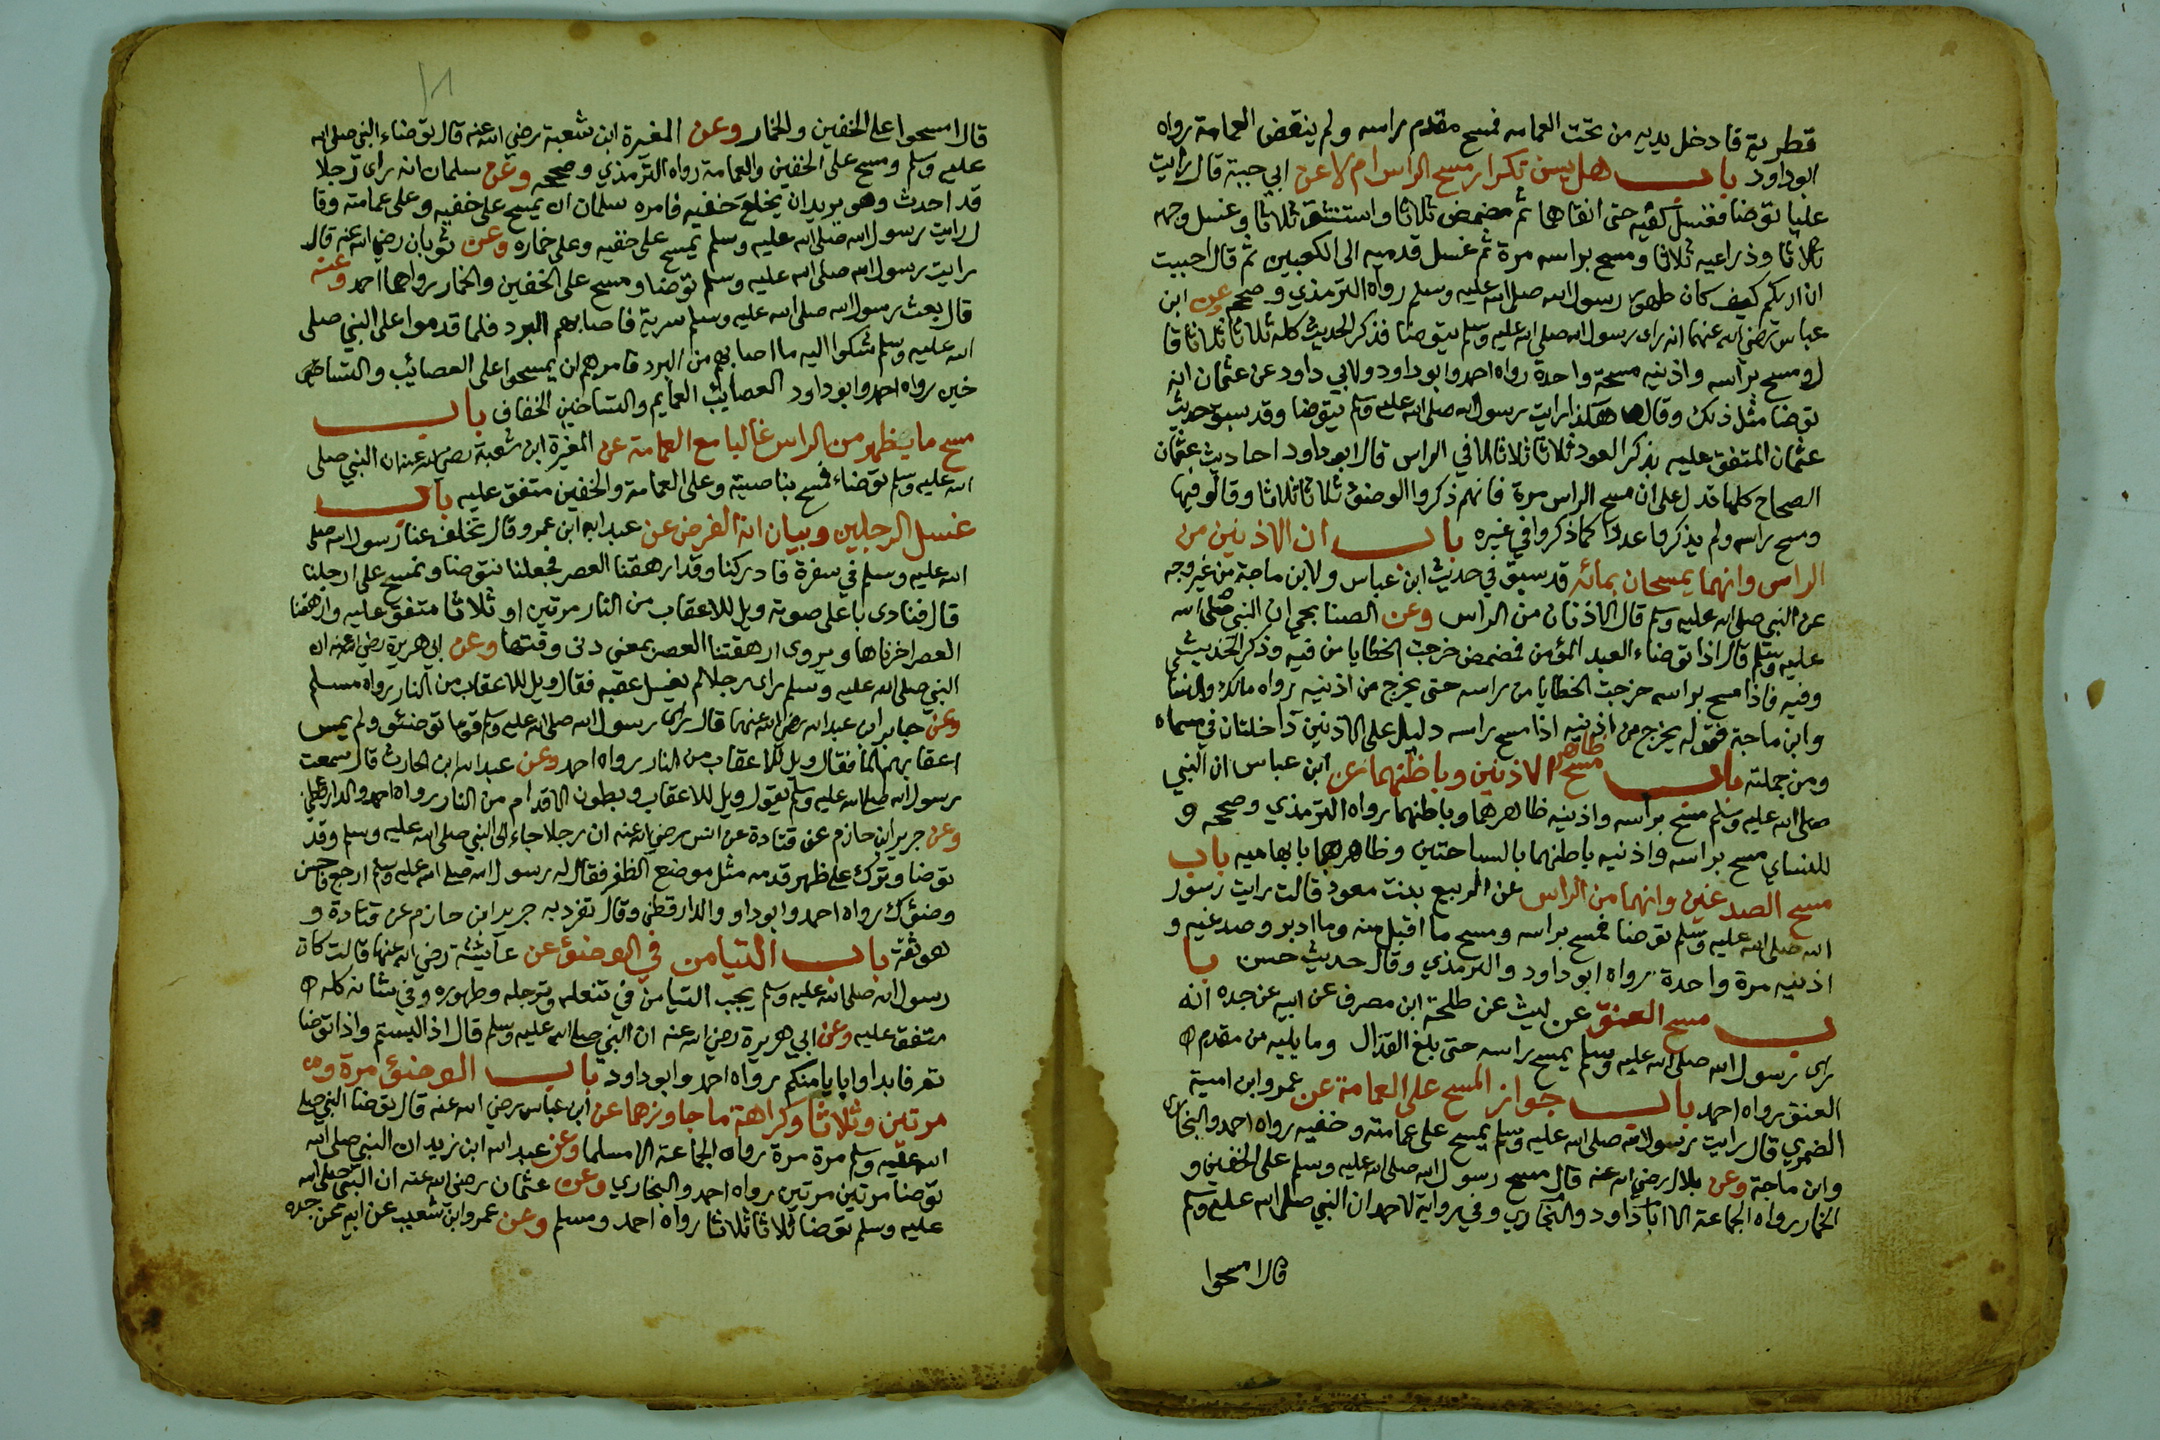 قطرية فادخل يديه من تحت العمامه فمسح مقدم راسه ولم ينقض العمامة رواه
ابو داود باب هل يسن تكرار مسح الراس ام لا عن ابي حبة قال رايت
عليا توضا فغسل كفيه حتى انقاها ثم مضمض ثلاثا واستنشق ثلاثا وغسل وجهه
ثلاثا وذراعيه ثلاثا ومسح براسه مرة ثم غسل قدميه الى الكعبين ثم قال احببت
ان اريكم كيف كان طهور رسول الله صلى الله عليه وسلم رواه الترمذي وصححه وعن ابن
عباس رضي الله عنهما انه راى رسول الله صلى الله عليه وسلم يتوضا فذكر الحديث كله ثلاثا ثلاثا قا
ل ومسح براسه واذنيه مسحة واحدة رواه احمد وابو داود ولابي داود عن عثمان انه
توضا مثل ذلك وقال هكذا رايت رسول الله صلى الله عليه وسلم يتوضا وقد سبق حديث
عثمان المتفق عليه بذكر العدد ثلاثا ثلاثا الا في الراس قال ابو داود احاديث عثمان
الصحاح كلها تدل على ان مسح الراس مرة فانهم ذكروا الوضوء ثلاثا ثلاثا وقالو فيها
ومسح براسه ولم يذكروا عددا كما ذكروا في غيره باب ان الاذنين من
الراس وانهما يمسحان بمائه قد سبق في حديث ابن عباس ولابن ماجة من غير وجه
عن النبي صلى الله عليه وسلم قال الاذنان من الراس وعن الصنابحي ان النبي صلى الله
عليه وسلم قال اذا توضاء العبد المؤمن فمضمض خرجت الخطايا من فيه وذكر الحديث
وفيه فاذا مسح براسه خرجت الخطايا من راسه حتى يخرج من اذنيه رواه مالك والنسا
وابن ماجة فقوله يخرج من اذنيه اذا مسح براسه دليل على الاذنين داخلتان في مسماه
ومن جملته باب مسح ظاهر الاذنين وباطنهما عن ابن عباس ان النبي
صلى الله عليه وسلم مسح براسه واذنيه ظاهرهما وباطنهما رواه الترمذي وصححه و
للنساي مسح براسه واذنيه باطنهما بالسباحتين وظاهرهما بابهاميه باب
مسح الصدغين وانهما من الراس عن الربيع بنت معوذ قالت رايت رسول
الله صلى الله عليه وسلم توضا فمسح براسه ومسح ما اقبل منه وما ادبر وصدغيه و
اذنيه مرة واحدة رواه ابو داود والترمذي وقال حديث حسن با
ب مسح العنق عن ليث عن طلحة ابن مصرف عن ابيه عن جده انه
راى رسول الله صلى الله عليه وسلم يمسح براسه حتى بلغ القذال وما يليه من مقدم
العنق رواه احمد باب جواز المسح على العمامة عن عمرو ابن امية
الضمري قال رايت رسول الله صلى الله عليه وسلم يمسح على عمامته وخفيه رواه احمد والبخاري
وابن ماجة وعن بلال رضي الله عنه قال مسح رسول الله صلى الله عليه وسلم على الخفين و
الخمار رواه الجماعة الا ابا داود والبخاري وفي رواية لاحمد ان النبي صلى الله عليه وسلم
قال امسحوا
قال امسحوا على الخفين والخمار وعن المغيرة ابن شعبة رضي الله عنه قال توضاء النبي صلى الله
عليه وسلم ومسح على الخفين والعمامة رواه الترمذي وصححه وعن سلمان انه راى رجلا
قد احدث وهو يريد ان يخلع خفيه فامره سلمان ان يمسح على خفيه وعلى عمامته وقا
ل رايت رسول الله صلى الله عليه وسلم يمسح على خفيه وعلى خماره وعن ثوبان رضي الله عنه قال
رايت رسول الله صلى الله عليه وسلم توضا ومسح على الخفين والخمار رواهما احمد وعنه
قال بعث رسول الله صلى الله عليه وسلم سرية فاصابهم البرد فلما قدموا على النبي صلى
الله عليه وسلم شكوا اليه ما اصابهم من البرد فامرهم ان يمسحوا على العصائيب والتسا
خين رواه احمد وابو داود العصايب العمايم والتساخين الخفاف باب
مسح ما يظهر من الراس غالبا مع العمامة عن المغيرة ابن شعبة رضي الله عنه ان النبي صلى
الله عليه وسلم توضاء فمسح بناصيته وعلى العمامة والخفين متفق عليه باب
غسل الرجلين وبيان انه الفرض عن عبد الله ابن عمرو قال تخلف عنا رسول الله صلى
الله عليه وسلم في سفرة فادركنا وقد ارهقنا العصر فجعلنا نتوضا ونمسح على ارجلنا
قال فنادى باعلى صوته ويل للاعقاب من النار مرتين او ثلاثا متفق عليه وارهقنا
العصر اخرناها ويروى ارهقتنا العصر بمعنى دنى وقتها وعن ابي هريرة رضي الله عنه ان
النبي صلى الله عليه وسلم راى رجلا لم يغسل عقبه فقال ويل للاعقاب من النار رواه مسلم
وعن جابر ابن عبد الله رضي الله عنهما قال راى رسول الله صلى الله عليه وسلم قوما توضئو ولم يمس
اعقابهم الما فقال ويل للاعقاب من النار رواه احمد وعن عبد الله ابن الحارث قال سمعت
رسول الله صلى الله عليه وسلم يقول ويل للاعقاب وبطون الاقدام من النار رواه احمد والدارقطني
وعن جرير ابن حازم عن قتادة عن انس رضي الله عنه ان رجلا جاء الى النبي صلى الله عليه وسلم وقد
توضا وترك على ظهر قدمه مثل موضع الظفر فقال له رسول الله صلى الله عليه وسلم ارجع فاحسن
وضؤك رواه احمد وابو داود والدارقطني وقال تفرد به جرير ابن حازم عن قتادة و
هو ثقة باب التيامن في الوضؤ عن عائشة رضي الله عنها قالت كان
رسول الله صلى الله عليه وسلم يحب التيامن في تنعله وترجله وطهوره وفي شانه كله
متفق عليه وعن ابي هريرة رضي الله عنه ان النبي صلى الله عليه وسلم قال اذا لبستم واذا توضا
تم فابداوا بايامنكم رواه احمد وابو داود باب الوضؤ مرة و
مرتين وثلاثا وكراهة ما جاوزهما عن ابن عباس رضي الله عنه قال توضا النبي صلى
الله عليه وسلم مرة مرة رواه الجماعة الا مسلما وعن عبد الله ابن زيد ان النبي صلى الله
توضا مرتين مرتين رواه احمد والبخاري وعن عثمان رضي الله عنه ان النبي صلى الله
عليه وسلم توضا ثلاثا ثلاثا رواه احمد ومسلم وعن عمرو ابن شعيب عن ابيه عن جده